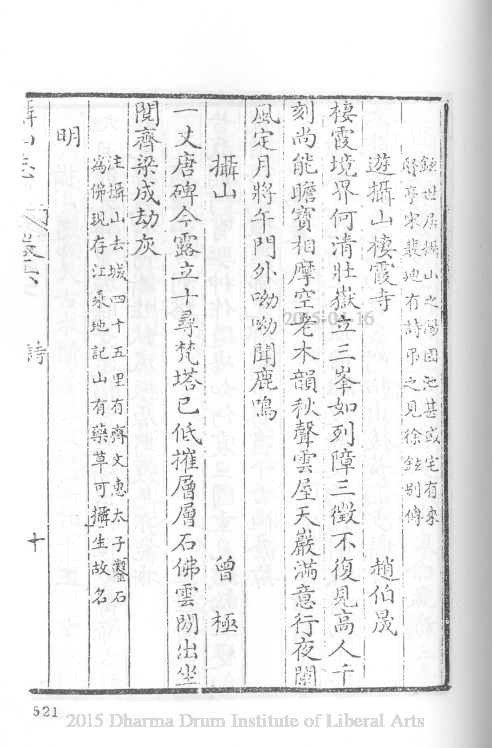 鉉世居攝山之陽園池甚盛宅有來
賢亭宋裴迪有詩弔之見徐鉉别傳
遊攝山棲霞寺　趙伯晟
棲霞境界何清壯嶽立三峯如列障三徵不復見高人千
刻尚能瞻寶相摩空老木韻秋聲雲屋天巖滿意行夜闌
風定月將午門外呦呦聞鹿鳴
攝山　曾極
一丈唐碑今露立十尋梵塔已低摧層層石佛雲閒出坐
閱齊梁成劫灰
注攝山去城四十五里有齊文惠太子鑿石
爲佛現存江乘地記山有藥草可攝生故名
明
攝山志　卷六　詩　十
2015-04-16
521
2015 Dharma Drum Institute of Liberal Arts